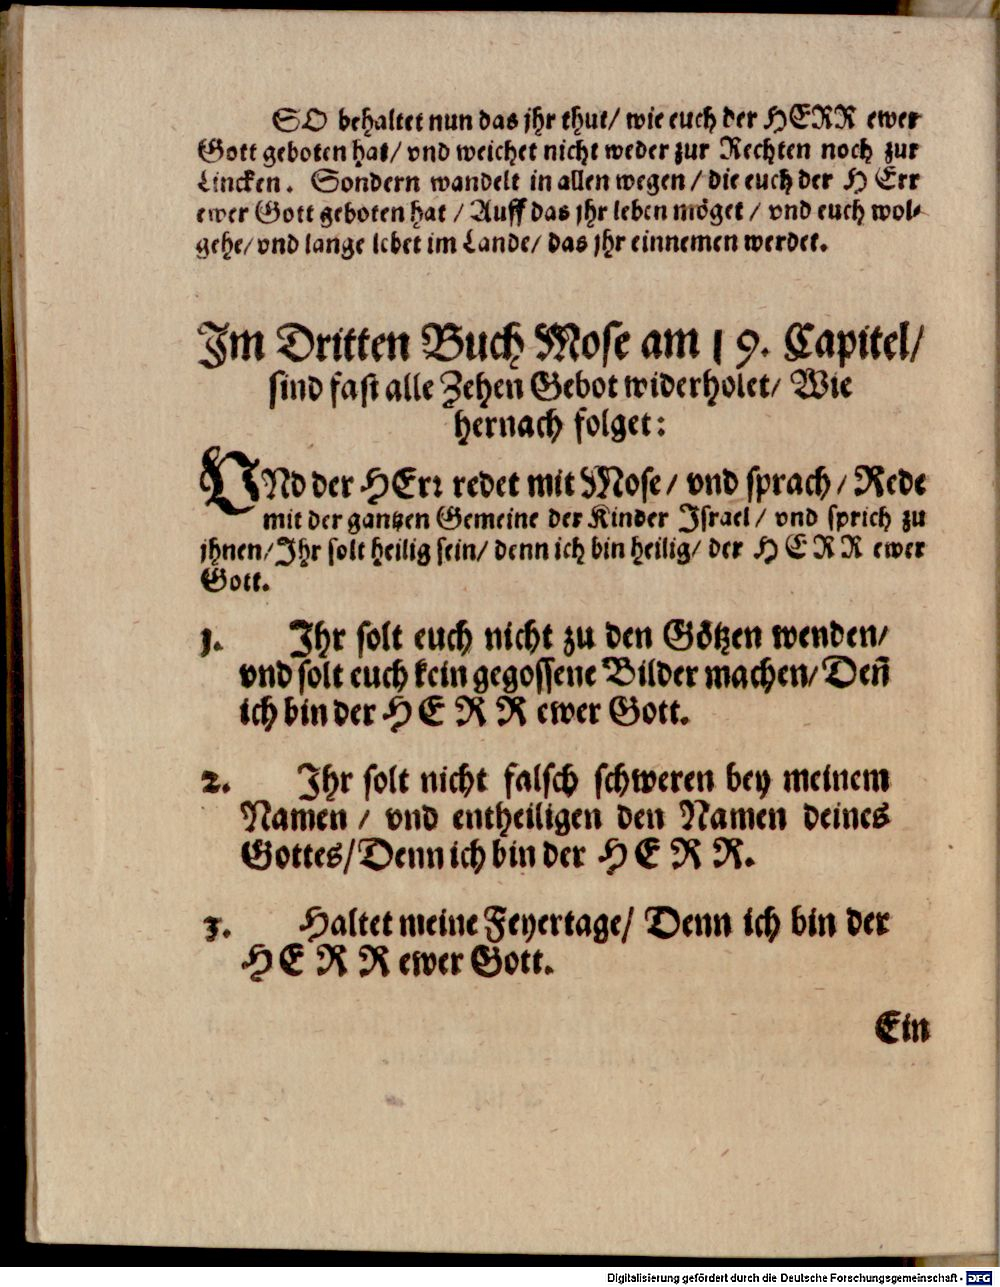 SO behaltet nun das jhr thut/ wie euch der HERR ewer
Gott geboten hat/ vnd weichet nicht weder zur Rechten noch zur
Lincken. Sondern wandelt in allen wegen/ die euch der HErr
ewer Gott geboten hat / Auff das jhr leben möget / vnd euch wol-
gehe/ vnd lange lebet im Lande/ das jhr einnemen werdet.
Im Dritten Buch Mose am 19. Capitel/
sind fast alle Zehen Gebot widerholet/ Wie
hernach folget:
VNd der HErr redet mit Mose/ vnd sprach/ Rede
mit der gantzen Gemeine der Kinder Israel/ vnd sprich zu
jhnen/ Ihr solt heilig sein/ denn ich bin heilig/ der HERR ewer
Gott.
1. Ihr solt euch nicht zu den Götzen wenden/
vnd solt euch kein gegossene Bilder machen/ Deñ
ich bin der HERR ewer Gott.
2. Ihr solt nicht falsch schweren bey meinem
Namen / vnd entheiligen den Namen deines
Gottes/ Denn ich bin der HERR.
3. Haltet meine Feyertage/ Denn ich bin der
HERR ewer Gott.
Ein
Digitalisierung gefördert durch die Deutsche Forschungsgemeinschaft - DFG